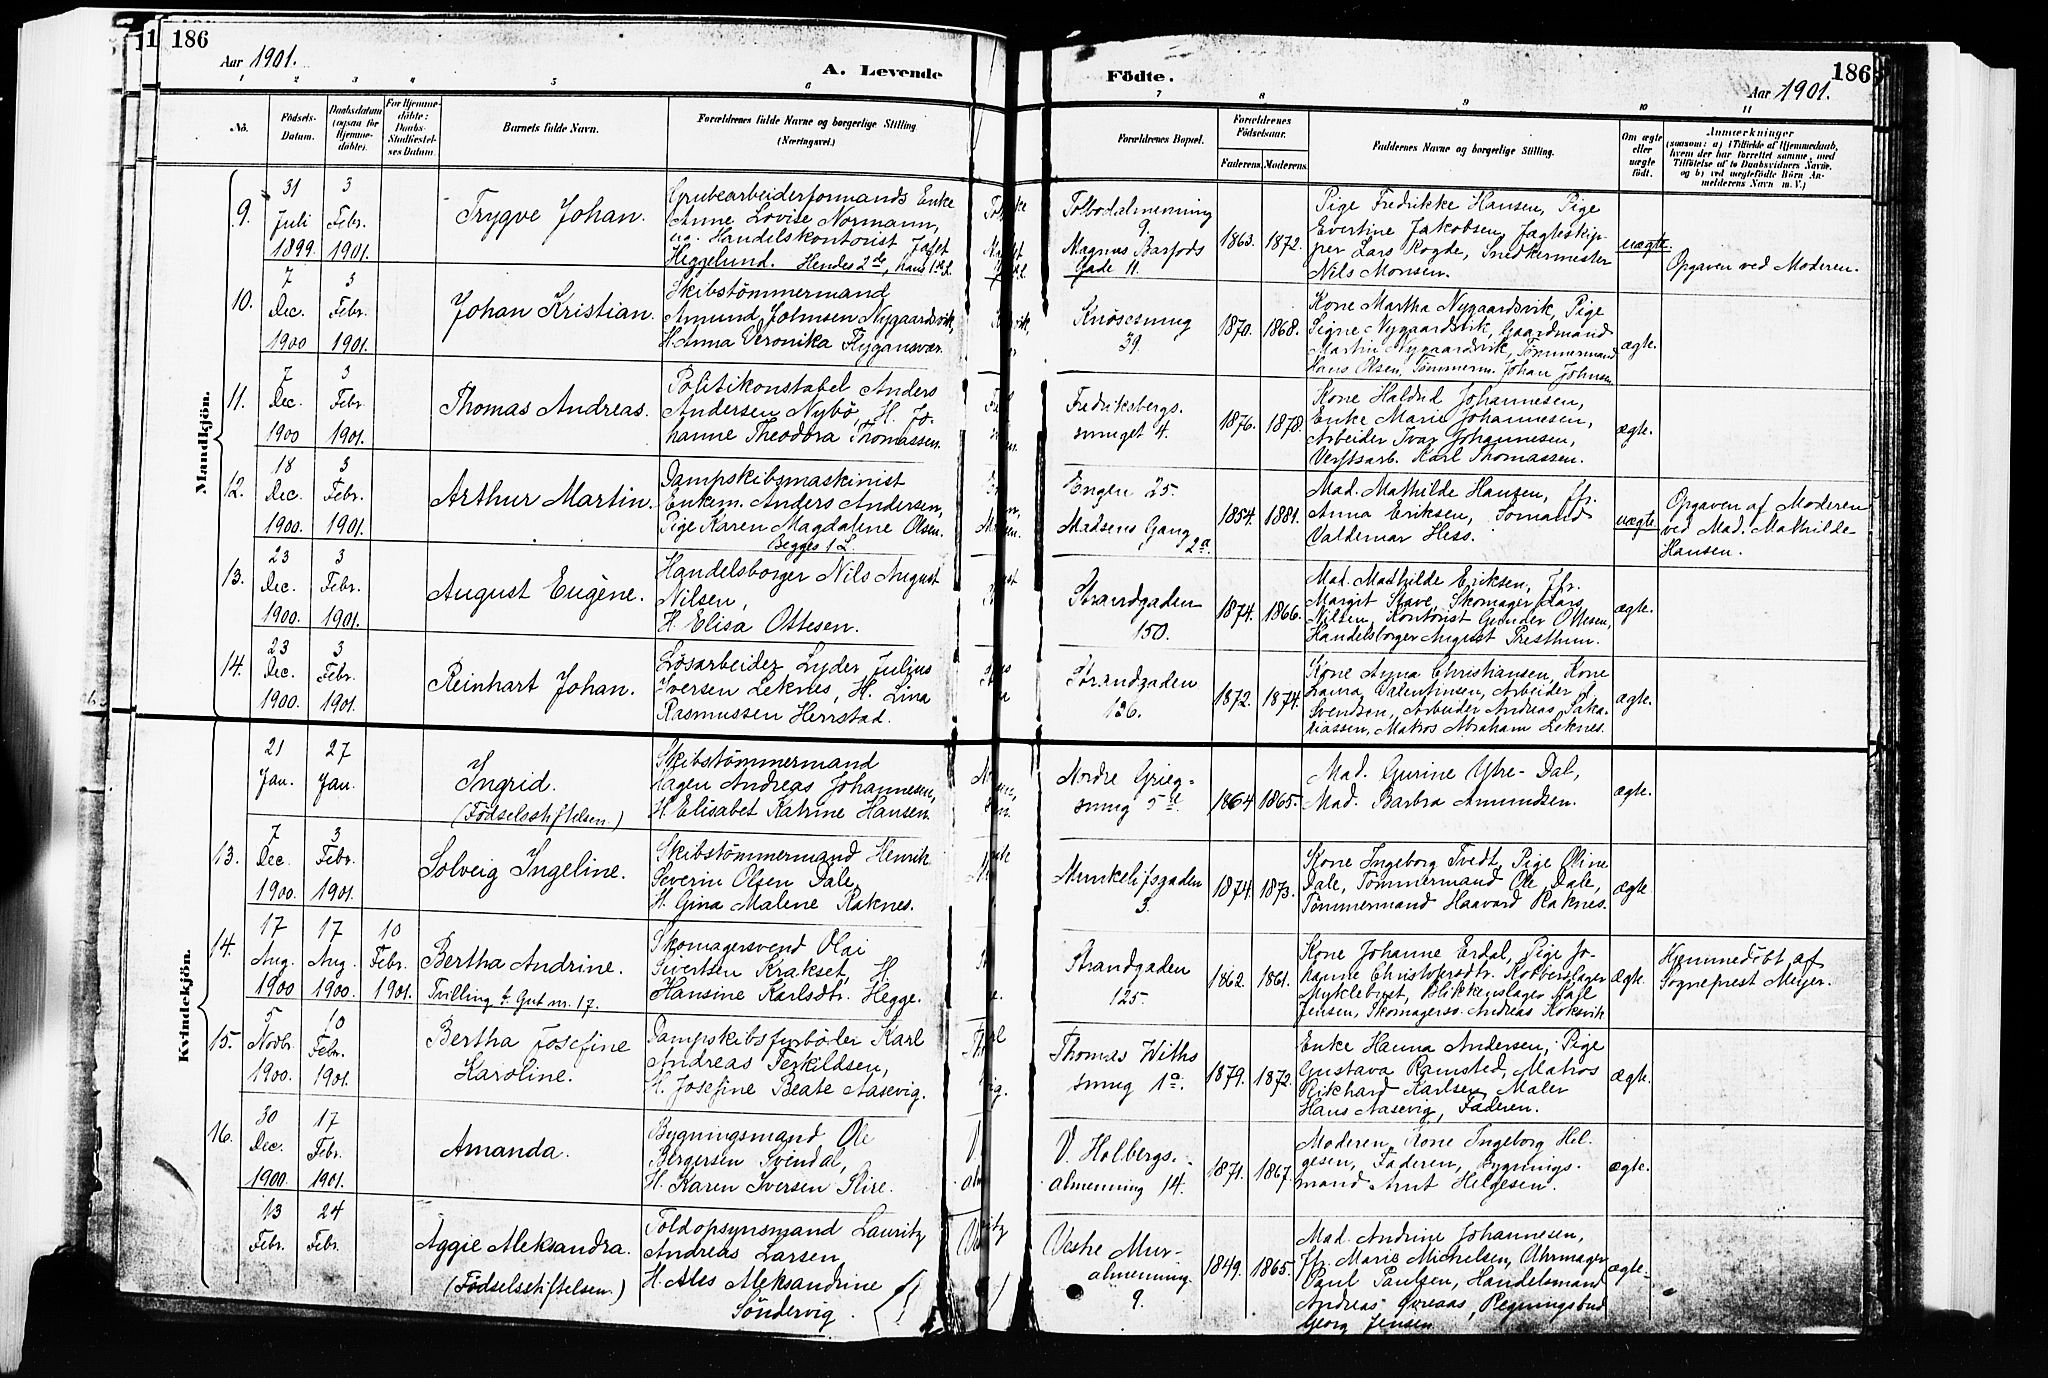 186
Aar 1901.
A. Levende
Födte.
186
Aar 1901.
1 2 3 4 5 6 7 8 9 10 11
No.
Födsels-Datum.
Daabsdatum (ogsaa for Hjemmedöbte).
For Hjemmedöbte: Daabs-Stadfæstelses Datum.
Barnets fulde Navn.
Forældrenes fulde Navne og borgerlige Stilling
(Næringsvei.)
Forældrenes Bopæl.
Forældrenes Födselsaar.
Faderens. Moderens.
Faddernes Navne og borgerlige Stilling.
Om ægte eller uægte födt.
Anmærkninger
(saasom: a) i Tilfælde af Hjemmedaab, hvem der har forrettet samme, med Tilföielse af to Daabsvidners Navne, og b) ved uægtefödte Börn Anmelderens Navn m. V.)
Mandkjön.
9.
31 Juli 1899
3 Febr. 1901.
Trygve Johan.
Grubearbeiderformands Enke
Anne Lovise Normann,
ug. Handelskontorist Jafet
Heggelund. Hendes 2de, hans 1ste L.
Tolbodalmenning
9.
Magnus Barfods
Gade 11.
1863. 1872.
Pige Fredrikke Hansen, Pige
Evertine Jakobsen, Jagteskip-
per Lars Rogde, Snedkermester
Nils Monsen.
uægte.
Opgaven ved Moderen.
10.
7 Dec. 1900
3 Febr. 1901.
Johan Kristian.
Skibstömmermand
Amund Johnsen Nygaardsvik,
H. Anna Veronika Flygansvær.
Knösesmug
39.
1870. 1868.
Kone Martha Nygaardsvik, Pige
Signe Nygaardsvik, Gaardmand
Martin Nygaardsvik, Tömmermand
Hans Olsen, Tömmerm. Johan Johnsen
ægte.
11.
7 Dec. 1900
3 Febr. 1901.
Thomas Andreas.
Politikonstabel Anders
Andersen Nybö, H. Jo-
hanne Theodora Thomassen.
Fredriksbergs-
smuget 4.
1876. 1878.
Kone Haldrid Johannesen,
Enke Marie Johannesen,
Arbeider Ivar Johannesen,
Verftsarb. Karl Thomassen.
ægte.
12.
18 Dec. 1900.
3 Febr. 1901.
Arthur Martin.
Dampskibsmaskinist
Enkem. Anders Andersen,
Pige Karen Magdalene Olsen.
Begges 1 L.
Engen 25.
Madsens Gang
2a.
1854. 1881.
Mad. Mathilde Hansen, Jfr.
Anna Eriksen, Sömand
Valdemar Hess.
uægte.
Opgaven af Moderen
ved Mad. Mathilde
Hansen.
13.
23 Dec. 1900.
3 Febr. 1901.
August Eugène.
Handelsborger Nils August
Nilsen,
H. Elisa Ottesen.
Strandgaden
150.
1874. 1866.
Mad. Mathilde Eriksen, Jfr.
Margit Stave, Skomager Lars
Nilsen, Kontorist Gunder Ottesen,
Handelsborger August Presthun.
ægte.
14.
23 Dec. 1900.
3 Febr. 1901.
Reinhart Johan.
Lösarbeider Lyder Julius
Iversen Leknes, H. Lina
Rasmussen Herrstad.
Strandgaden
126.
1872. 1874.
Kone Anna Christiansen, Kone
Laura Valentinsen, Arbeider
Svendsen, Arbeider Andreas Saka-
riassen, Matros Abraham Leknes.
ægte.
Kvindekjön.
21 Jan.
27 Jan.
Ingrid.
(Födselsstiftelsen.)
Skibstömmermand
Hagen Andreas Johannesen,
H. Elisabet Katrine Hansen.
Nordre Grieg-
smug 5
1864 1865.
Mad. Gurine Ytre-Dal,
Mad. Barbra Amundsen.
ægte.
13.
7 Dec. 1900
3 Febr. 1901.
Solveig Ingeline.
Skibstömmermand Henrik
Severin Olsen Dale,
H. Gina Malene Raknes.
Munkelifsgaden
3.
1874. 1873.
Kone Ingeborg Tvedt, Pige Oline
Dale, Tömmermand Ole Dale,
Tömmermand Haavard Raknes.
ægte
14.
17 Aug. 1900
17 Aug. 1900.
10 Febr. 1901.
Bertha Andrine.
Tvilling t. Gut nr. 17.
Skomagersvend Olai
Sivertsen Krakset, H.
Hansine Karlsdtr. Hegge.
Strandgaden
125.
1862. 1861.
Kone Johanne Erdal, Pige Jo-
hanne Christofersdtr. Kobberslager
Myklebust, Blikkenslager
Jensen, Skomagersv. Andreas Koksvik
ægte.
Hjemmedöbt af
Sogneprest Meyer.
15.
5 Novbr. 1900.
10 Febr. 1901.
Bertha Josefine
Karoline.
Dampskibsfyrböder Karl
Andreas Terkildsen,
H. Josefine Beate Aasevig.
Thomas Withs
smug 1a.
1879. 1872.
Enke Hanna Andersen, Pige
Gustava Ramsted, Matros
Rikhard Karlsen, Maler
Hans Aasevig, Faderen.
ægte.
16.
30 Dec. 1900.
17 Febr. 1901.
Amanda.
Bygningsmand Ole
Bergersen Svindal,
H. Karen Iversen Slire.
V. Holbergs-
almenning 14.
1871. 1867.
Moderen, Kone Ingeborg Hel-
gesen, Faderen, Bygnings-
mand Arnt Helgesen.
ægte.
13 Febr.
24 Febr.
Aggie Aleksandra.
(Födselsstiftelsen.)
Toldopsynsmand Lauritz
Andreas Larsen,
H. Ales Aleksandrine
Söndervig.
Vestre Mur-
almenning.
9.
1849. 1865.
Mad. Andrine Johannesen,
Jfr. Marie Michelsen, Uhrmager
Paul Paulsen, Handelsmand
Andreas, Regningsbud
Georg Jensen
ægte.